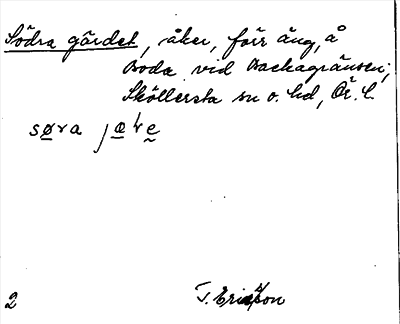 Södra gärdet, åker, förr äng, å
Boda vid Backagränsen;
Sköllersta sn o. hd, Ör. l.
søra jæ
2
T. Ericsson